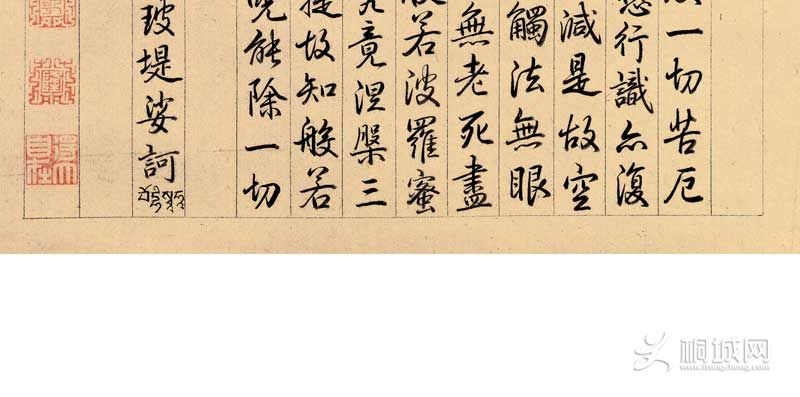 一切苦厄
行識亦復
減是故空
觸法無眼
無老死盡
若波羅蜜
竟涅槃三
提故知般若
咒能除一切
玻堤娑訶
自在
桐城网
www.itongcheng.com